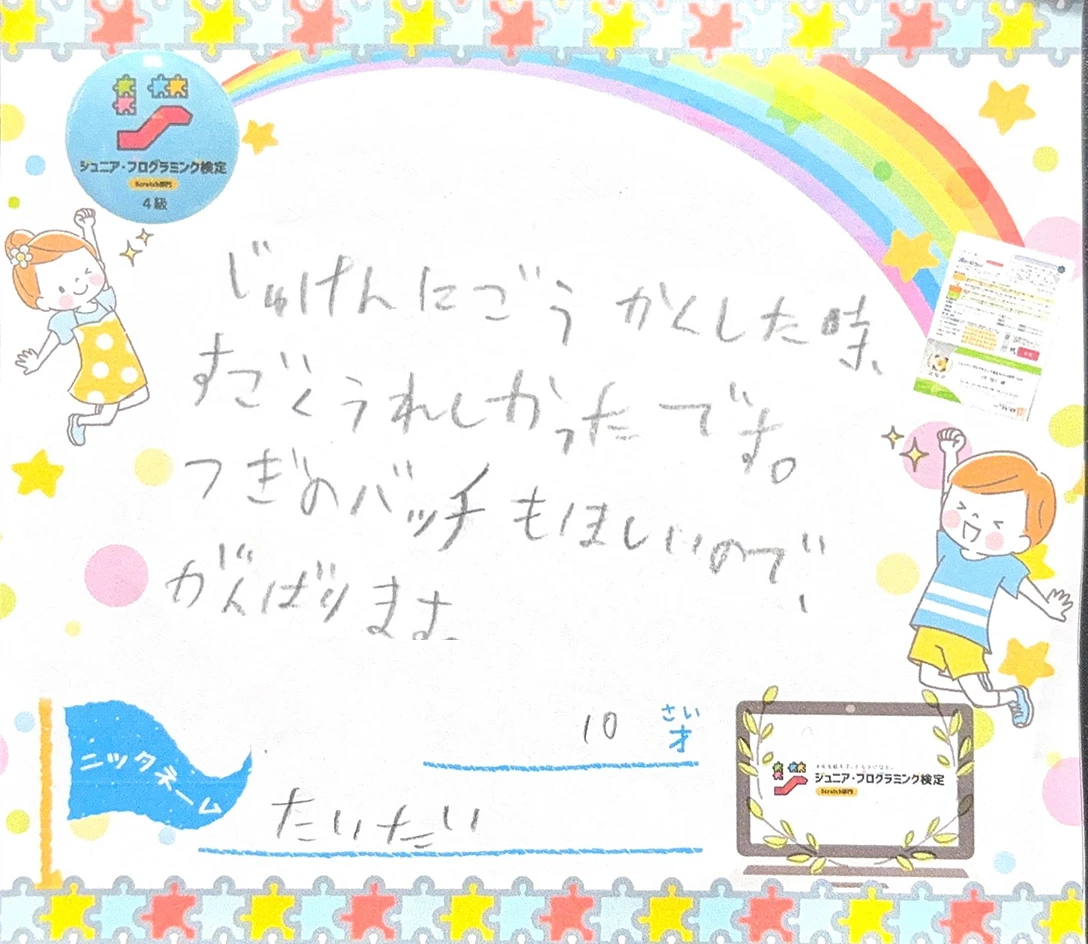 ジュニア・プログラミング検定
Scratch部門
4級
じゅけんにごうかくした時、
すごくうれしかったです。
つぎのバッチもほしいので
がんばります。
10
さい
才
ニックネーム
たいたい
ジュニア・プログラミング検定
Scratch部門